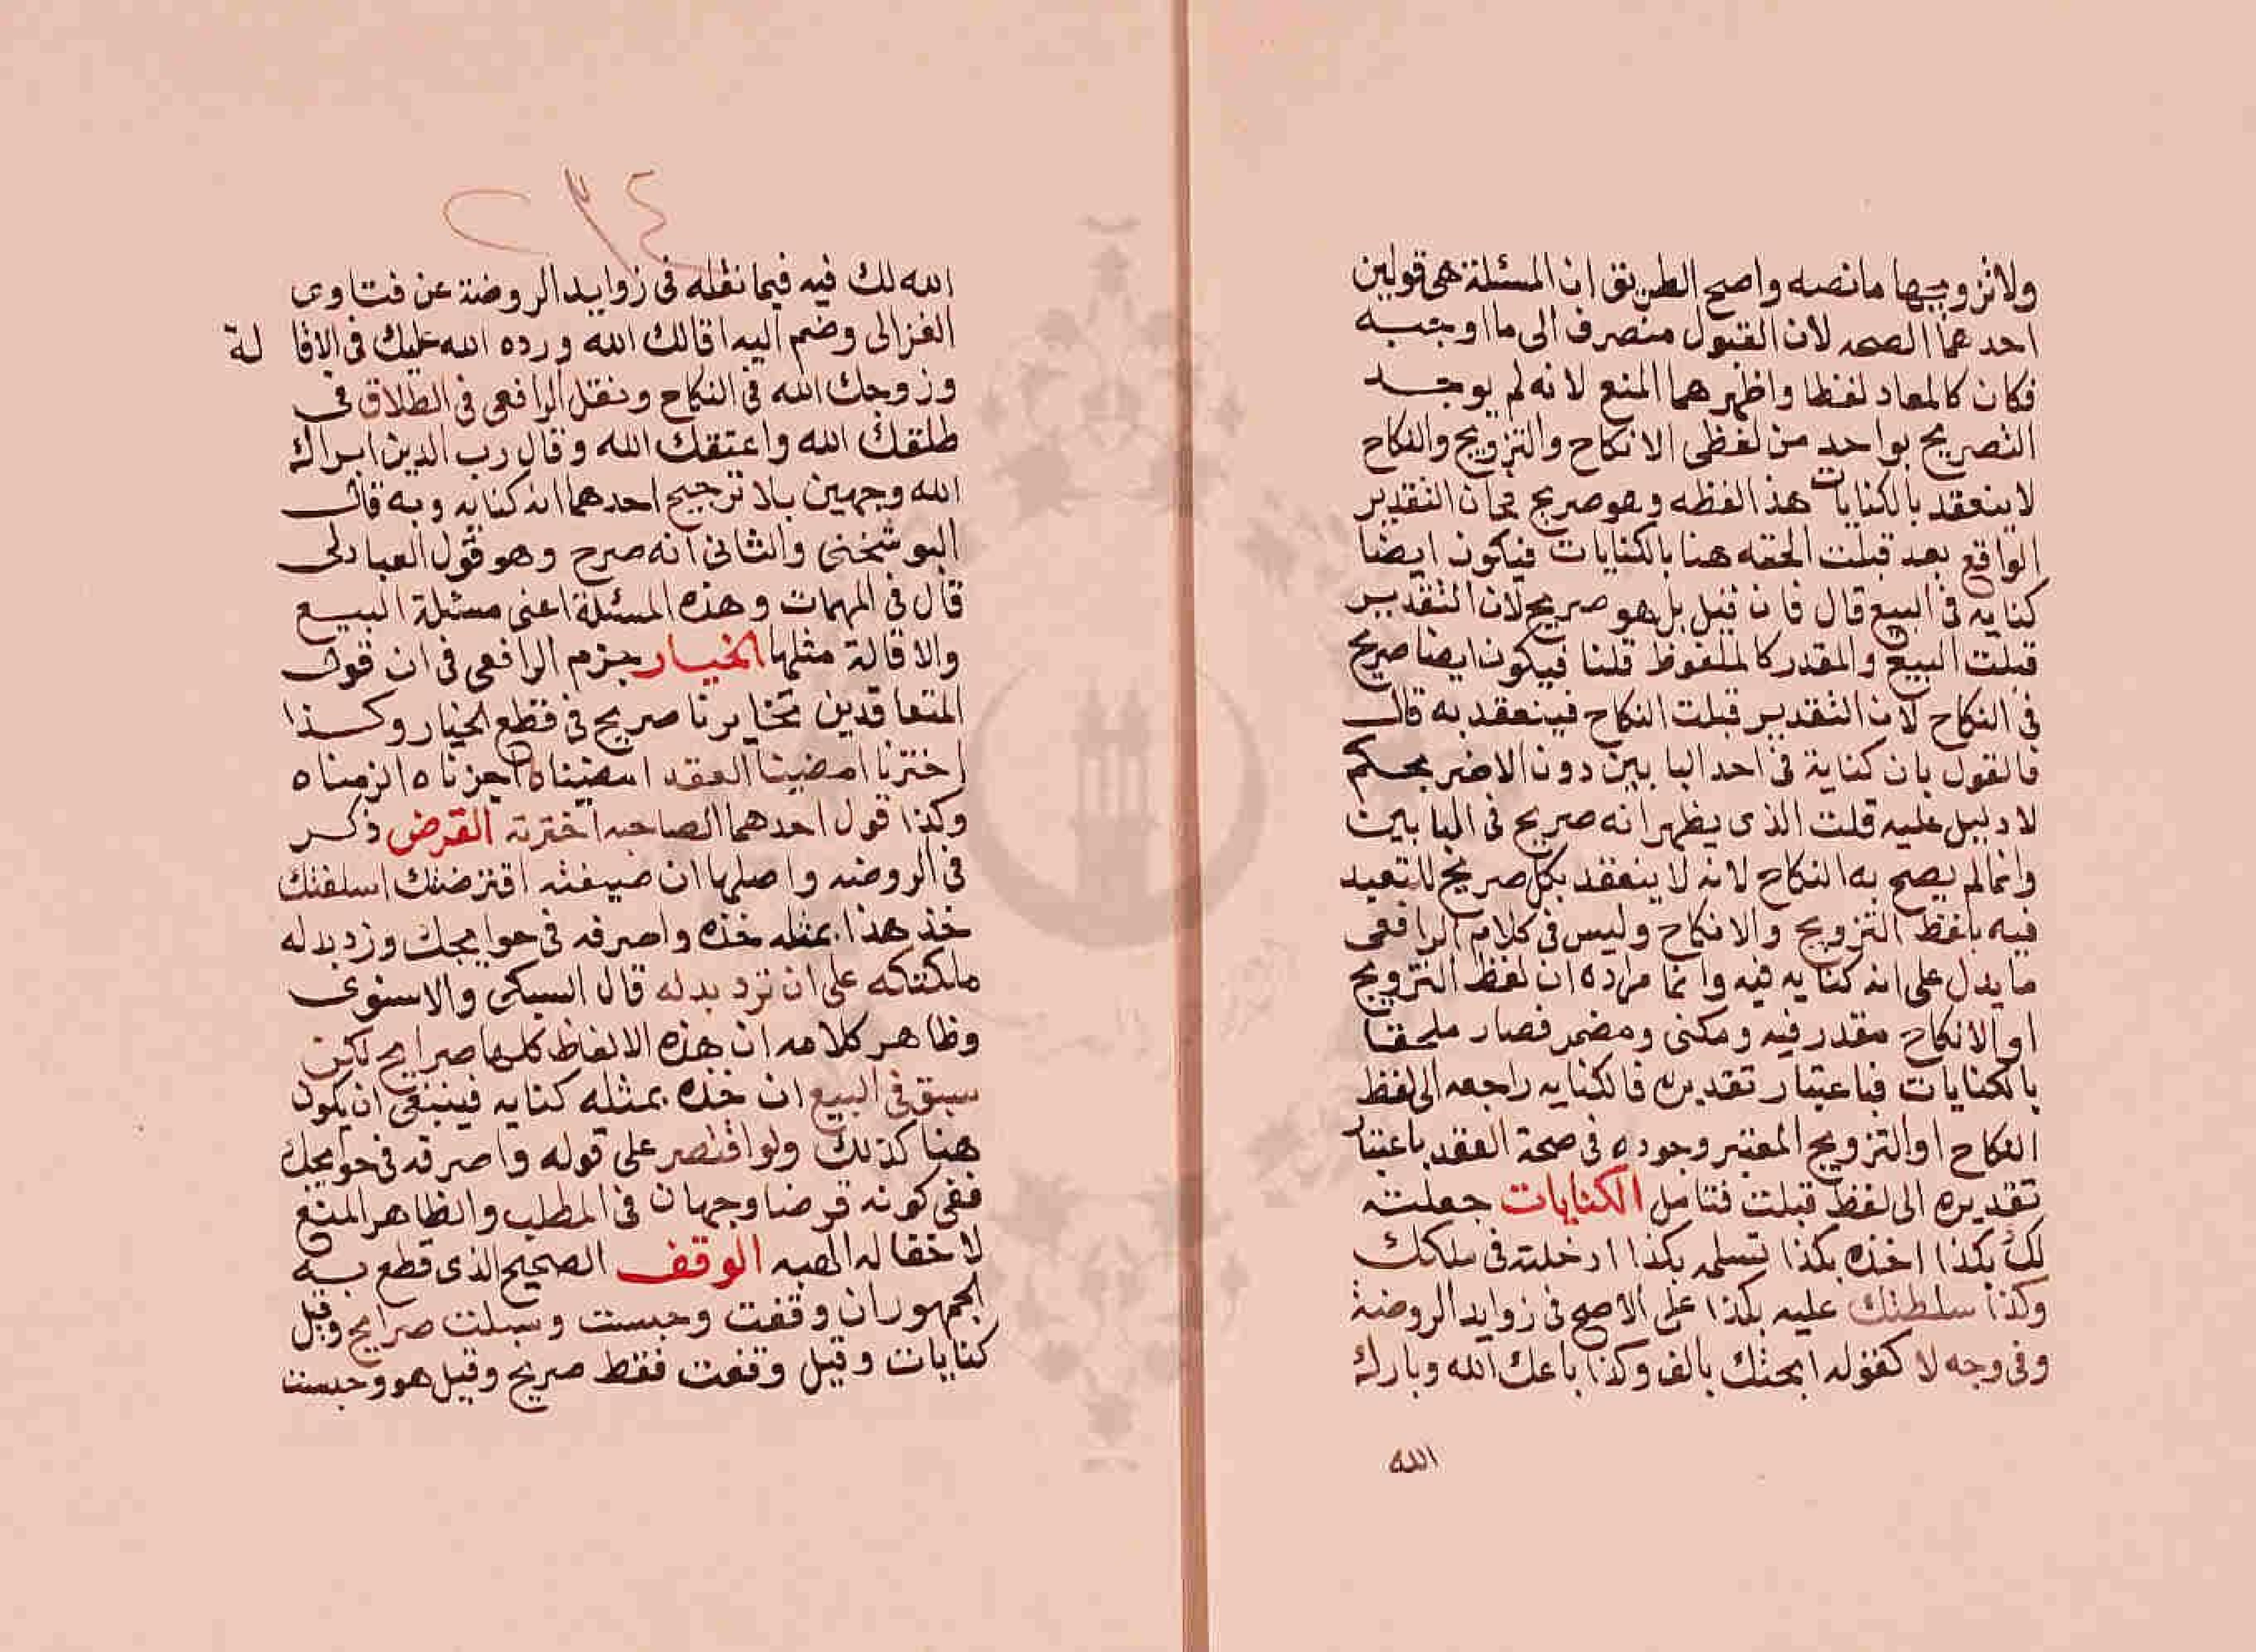 ولاتزويجها مانصه واصح الطريق ان المسئلة هي قولين
احدهما الصحه لان القبول منصرف الى ما اوجبه
فكان كالمعاد لفظا واظهرهما المنع لانه لم يوجد
التصريح بواحد من لفظى الانكاح والتزويج والنكاح
لا ينعقد بالكنايات هذا لفظه وهو صريح بان التقدير
الواقع بعد قبلت الحقه هنا بالكنايات فيكون ايضا
كنايه في البيع قال فان قيل بل هو صريح لان التقدير
قبلت البيع والمقدر كالملفوظ قلنا فيكون ايضا صريح
في النكاح لان التقدير قبلت النكاح فينعقد به قال
فالقول بان كناية في احد البابين دون الاخر بحكم
لا دليل عليه قلت الذى يظهر انه صريح في البابين
وانما لم يصح به النكاح لانه لا ينعقد بكل صريح للتعبد
فيه بلفظ التزويج والانكاح وليس في كلام الرافعى
ما يدل على انه كنايه فيه وانما مراده ان لفظ التزويج
او الانكاح مقدر فيه ومكنى ومضمر فصار ملحقا
بالكنايات فباعتبار تقديره فالكنايه راجعه الى لفظ
النكاح او التزويج المعتبر وجوده في صحة العقد باعتبار
تقديره الى لفظ قبلت فتامل الكنايات جعلته
لك بكذا اخذه بكذا تسلمه بكذا ادخلته في ملكك
وكذا سلطتك عليه بكذا على الاصح في زوايد الروضة
وفى وجه لا كقوله ابحتك بالف وكذا باعك الله وبارك
الله
الله لك فيه فيما نقله في زوايد الروضة عن فتاوى
الغزالى وضم اليه اقالك الله ورده الله عليك في الاقا لة
وزوجك الله في النكاح ونقل الرافعى في الطلاق في
طلقك الله واعتقك الله وقال رب الدين ابراك
الله وجهين بلا ترجيح احدهما انه كنايه وبه قال
البوشخنى والثانى انه صرح وهو قول العبادلى
قال في المهمات وهذه المسئلة اعنى مسئلة البيع
والاقالة مثلها الخيار جزم الرافعى في ان قول
المتعاقدين تخايرنا صريح في قطع الخيار وكذا
اخترنا امضينا العقد امضيناه اجزناه الزمناه
وكذا قول احدهما لصاحبه اخترته القرض ذكر
في الروضه واصلها ان صيغته اقترضتك اسلفتك
خذ هذا بمثله خذه واصرفه في حوايجك وزد بدله
ملكتكه على ان ترد بدله قال السبكى والاسنوى
وظاهر كلامه ان هذه الالفاظ كلها صرايح لكن
سبق في البيع ان خذه بمثله كنايه فينبغى ان يكون
هنا كذلك ولو اقتصر على قوله واصرفه في حوايجك
ففى كونه قرضا وجهان في المطلب والظاهر المنع
لاحتماله الهبه الوقف الصحيح الذى قطع به
الجمهور ان وقفت وحبست وسبلت صرايح وقيل
كنايات وقيل وقفت فقط صريح وقيل هو وحبست